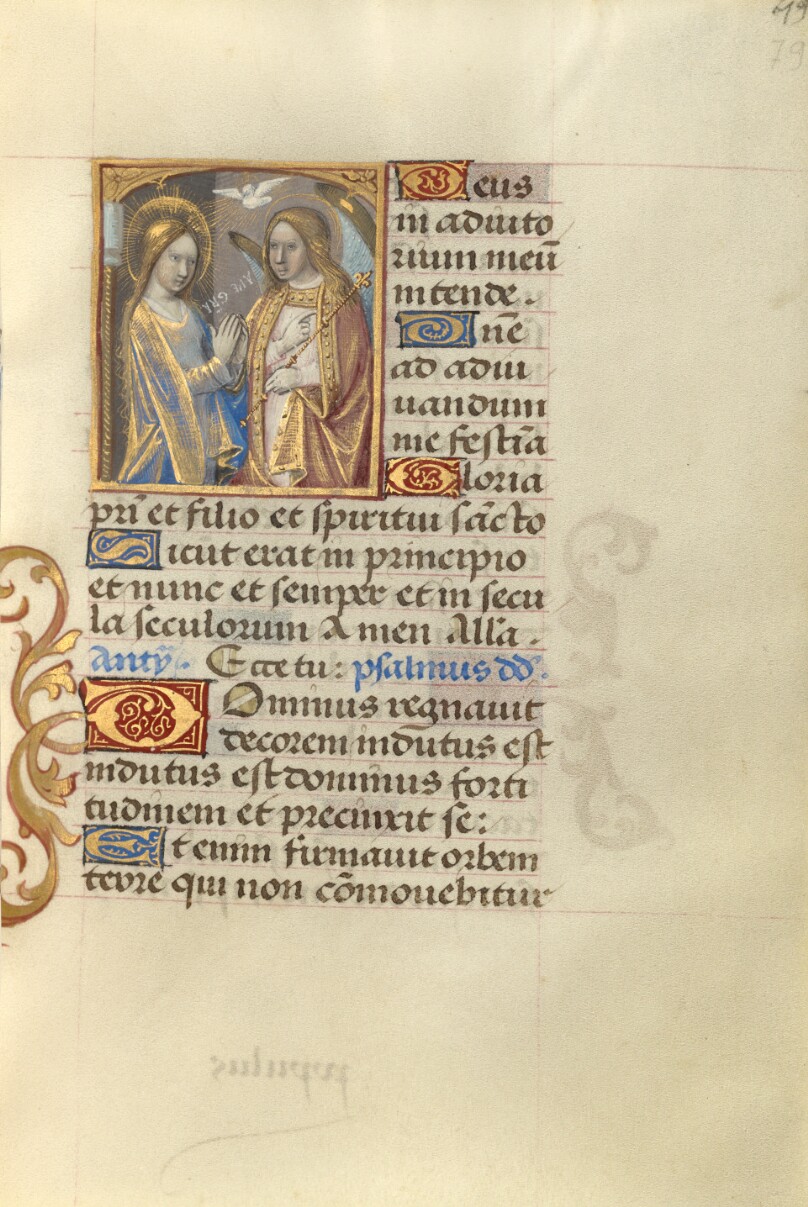 79
79
AVE GRÃ
Deus
in adiuto
rium meū
intende.
Dñe
ad adiu
uandum
me festīa
Gloria
pr̄i et filio et spiritui sācto
Sicut erat in principio
et nunc et semper et in secu
la seculorum Amen All'a.
Antȳ. Ecce tu: psalmus dd̄.
Dominus regnauit
decorem indutus est
indutus est dominus forti
tudinem et precinxit se:
Etenim firmauit orbem
terre qui non cōmouebitur
populus